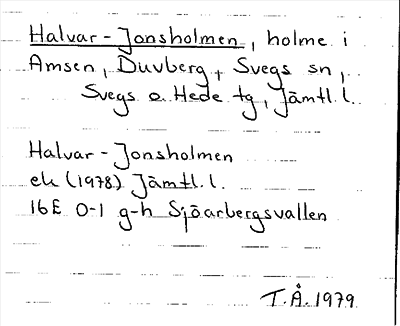 Halvar-Jonsholmen, holme i
Amsen, Duvberg, Svegs sn,
Svegs o Hede tg, Jämtl.l.
Halvar-Jonsholmen
ek (1978) Jämtl.l.
16E 0-1 g-h Sjöarbergsvallen
T.Å. 1979